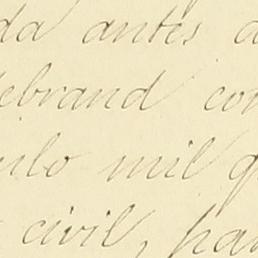 da antes d
ebrand con
uilo mil q
civil, par